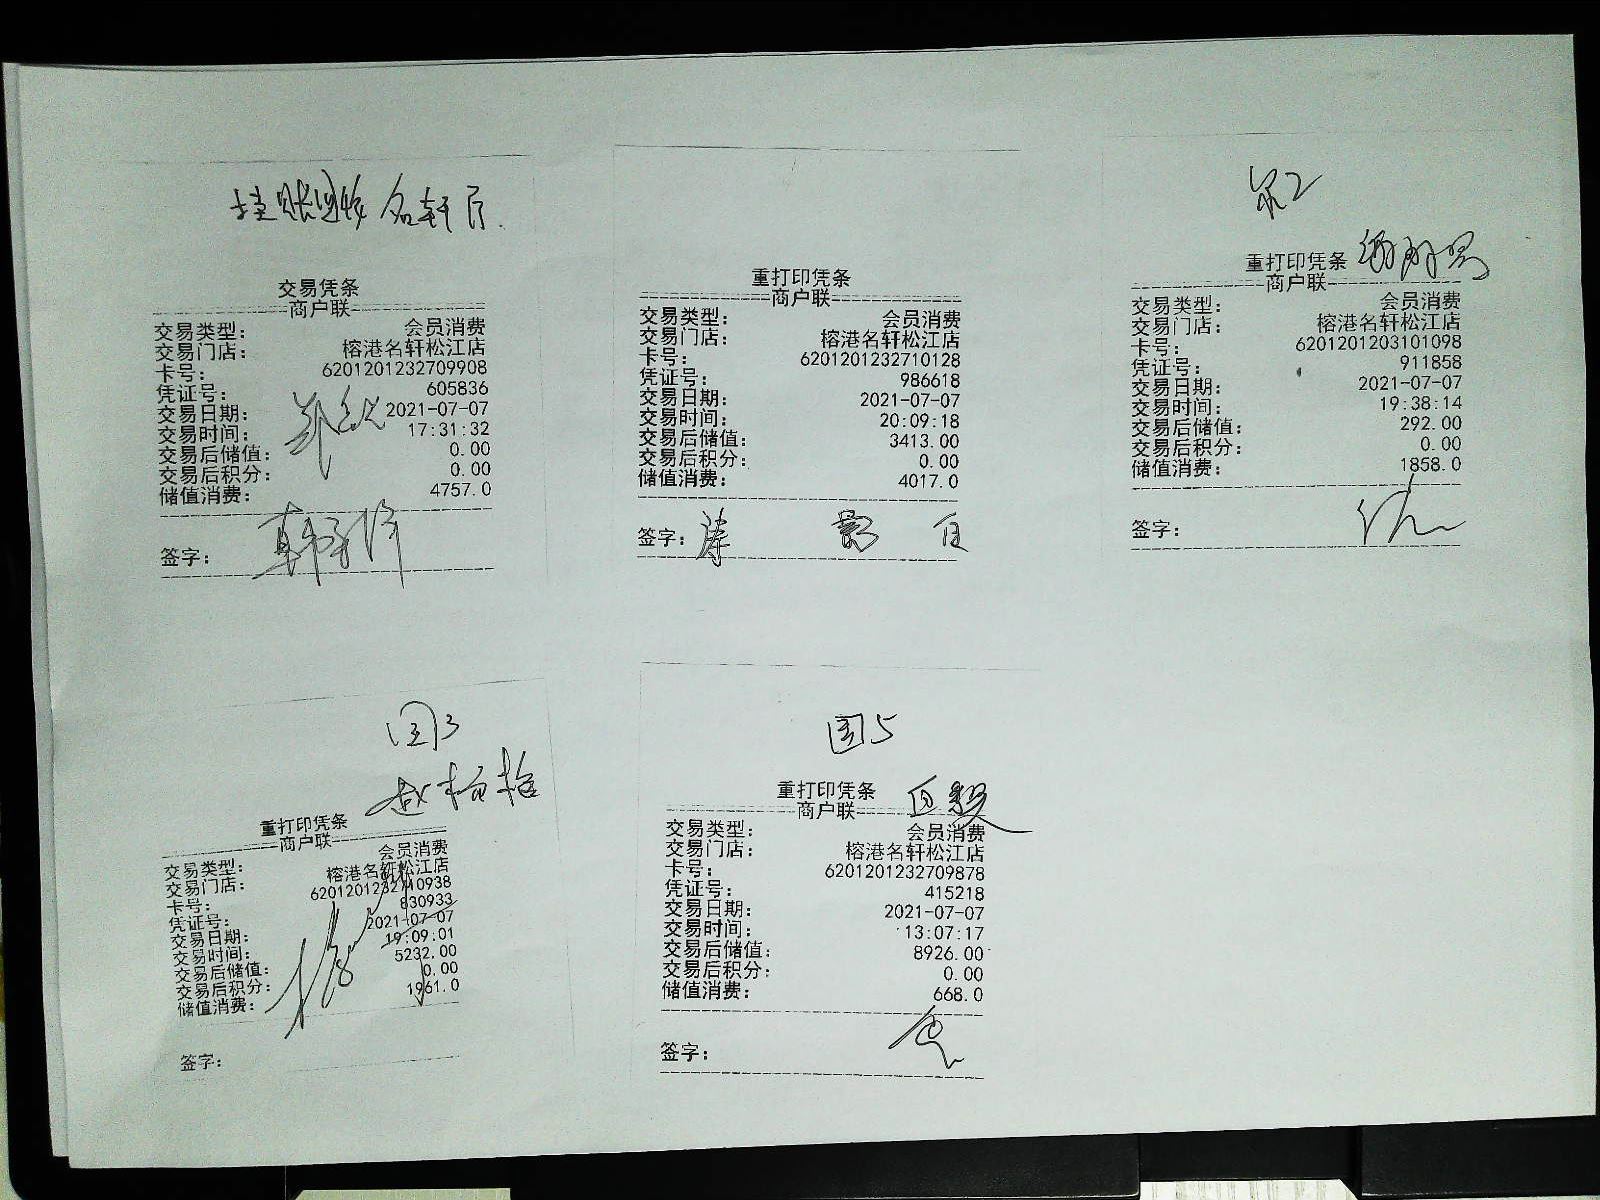 挂账回收 名轩厅.
交易凭条
商户联
交易类型: 会员消费
交易门店: 榕港名轩松江店
卡号: 6201201232709908
凭证号: 605836
交易日期: 2021-07-07
交易时间: 17:31:32
交易后储值: 0.00
交易后积分: 0.00
储值消费: 4757.0
签字:
重打印凭条
商户联
交易类型: 会员消费
交易门店: 榕港名轩松江店
卡号: 6201201232710128
凭证号: 986618
交易日期: 2021-07-07
交易时间: 20:09:18
交易后储值: 3413.00
交易后积分: 0.00
储值消费: 4017.0
签字:
重打印凭条
商户联
交易类型: 会员消费
交易门店: 榕港名轩松江店
卡号: 6201201203101098
凭证号: 911858
交易日期: 2021-07-07
交易时间: 19:38:14
交易后储值: 292.00
交易后积分: 0.00
储值消费: 1858.0
签字:
国3
重打印凭条
商户联
交易类型: 会员消费
交易门店: 榕港名轩松江店
卡号: 6201201232710938
凭证号: 830933
交易日期: 2021-07-07
交易时间: 19:09.01
交易后储值: 5232.00
交易后积分: 0.00
储值消费: 1961.0
签字:
国5
重打印凭条
商户联
交易类型: 会员消费
交易门店: 榕港名轩松江店
卡号: 6201201232709878
凭证号: 415218
交易日期: 2021-07-07
交易时间: 13:07:17
交易后储值: 8926.00
交易后积分: 0.00
储值消费: 668.0
签字: